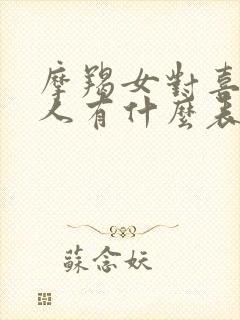 摩羯女對喜
人有什麼表
蘇念妖